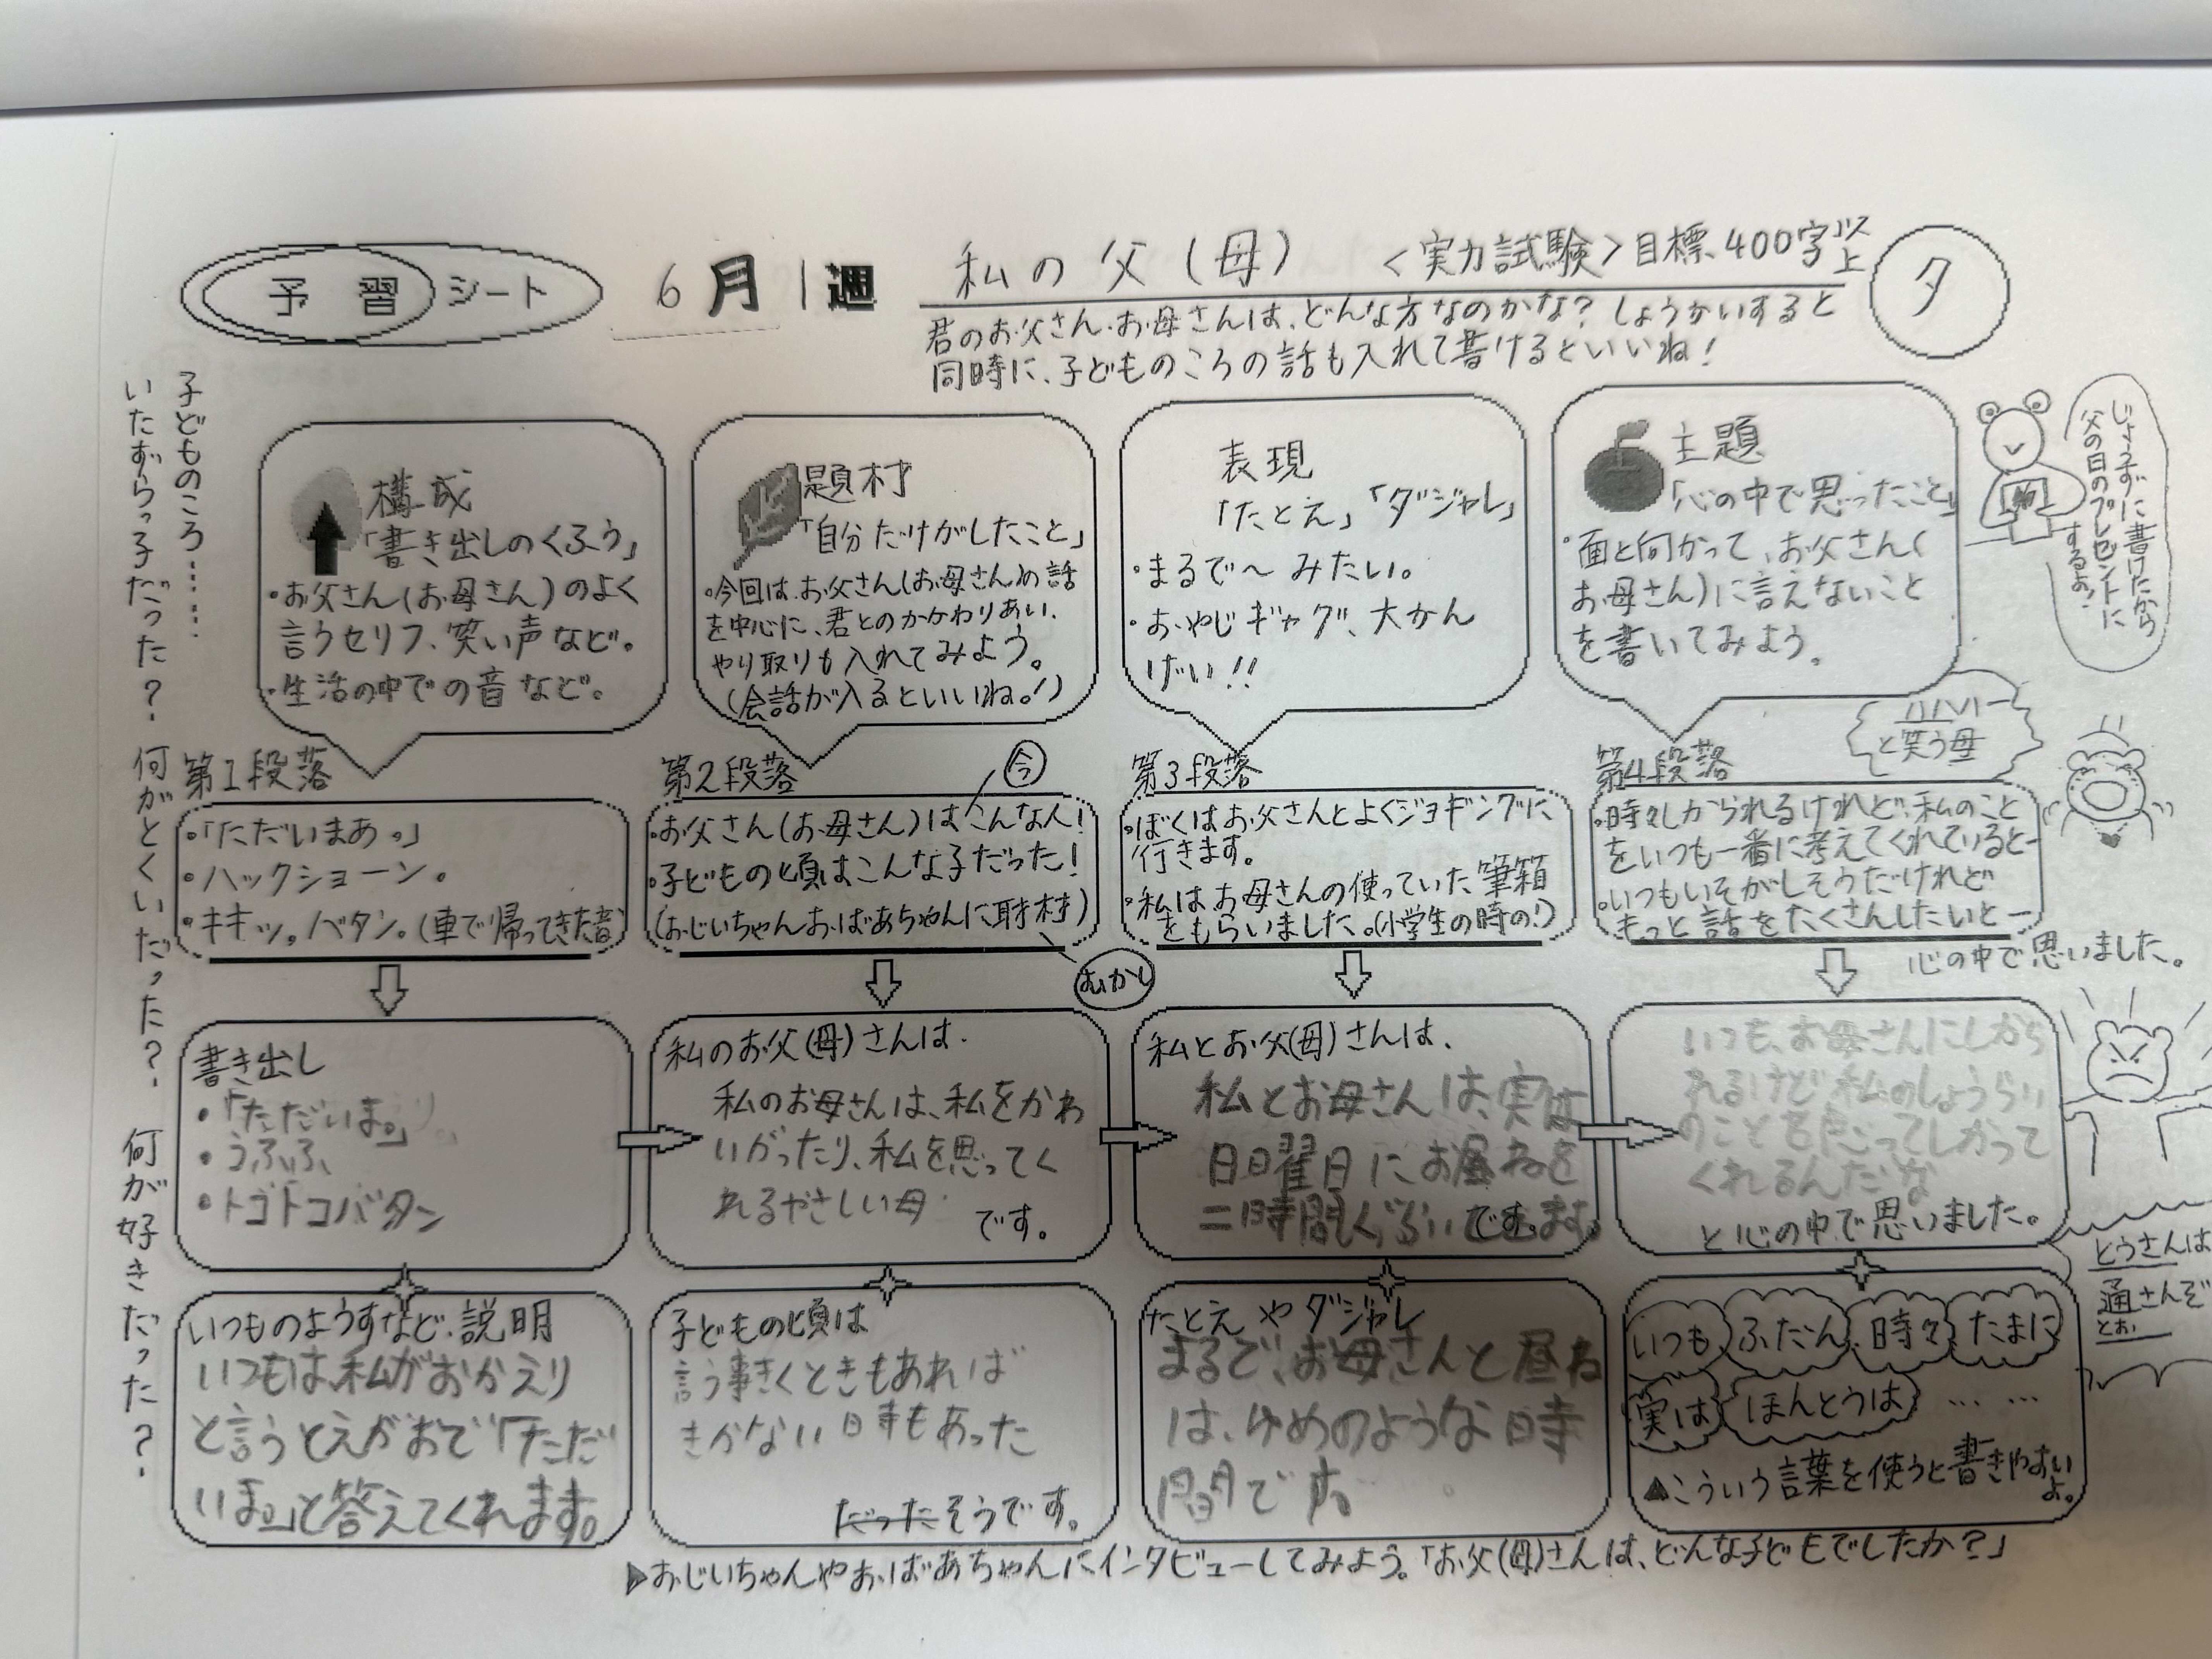 予習シート
6月1週
私の父(母)
<実力試験>目標、400字以上
タ
君のお父さん、お母さんは、どんな方なのかな?しょうかいすると
同時に、子どものころの話も入れて書けるといいね!
子どものころ……
いたずらっ子だった?何がとくいだった?何が好きだった?
構成
「書き出しのくふう」
・お父さん(お母さん)のよく
言うセリフ、笑い声など。
・生活の中での音など。
題材
「自分だけがしたこと」
・今回は、お父さん(お母さん)の話
を中心に、君とのかかわりあい、
やり取りも入れてみよう。
(会話が入るといいね。!)
表現
「たとえ」「ダジャレ」
・まるで〜みたい。
・おやじギャグ、大かん
げい!!
主題
「心の中で思ったこと」
・面と向かって、お父さん(
お母さん)に言えないこと
を書いてみよう。
じょうずに書けたから
父の日のプレゼントに
するよ!
ハハハー
と笑う母
第1段落
・「ただいまあ。」
・ハックショーン。
・キキッ。バタン。(車で帰ってきた音)
第2段落
今
・お父さん(お母さん)はこんな人!
・子どもの頃はこんな子だった!
(おじいちゃんおばあちゃんに取材)
むかし
第3段落
・ぼくはお父さんとよくジョギングに
行きます。
・私はお母さんの使っていた筆箱
をもらいました。(小学生の時の!)
第4段落
・時々しかられるけれど、私のこと
をいつも一番に考えてくれていると—
・いつもいそがしそうだけれど
もっと話をたくさんしたいと—
心の中で思いました。
書き出し
・「ただいま。」
・うふふ
・トコトコバタン
私のお父(母)さんは、
私のお母さんは、私をかわ
いがったり、私を思ってく
れるやさしい母
です。
私とお父(母)さんは、
私とお母さんは、実は
日曜日にお昼ねを
二時間くらい
です。
いつも、お母さんにしから
れるけど、私のしょうらい
のことを思ってしかって
くれるんだな
と心の中で思いました。
いつものようすなど、説明
いつもは、私がおかえり
と言うとえがおで「ただ
いま。」と答えてくれます。
子どもの頃は
言う事きくときもあれば
きかない時もあった
だったそうです。
たとえやダジャレ
まるで、お母さんと昼ね
は、ゆめのような時
間です。
いつも ふだん 時々 たまに
実は ほんとうは ……
▲こういう言葉を使うと書きやすいよ。
とうさんは
通さんぞ
とお
▶おじいちゃんやおばあちゃんにインタビューしてみよう。「お父(母)さんは、どんな子どもでしたか?」